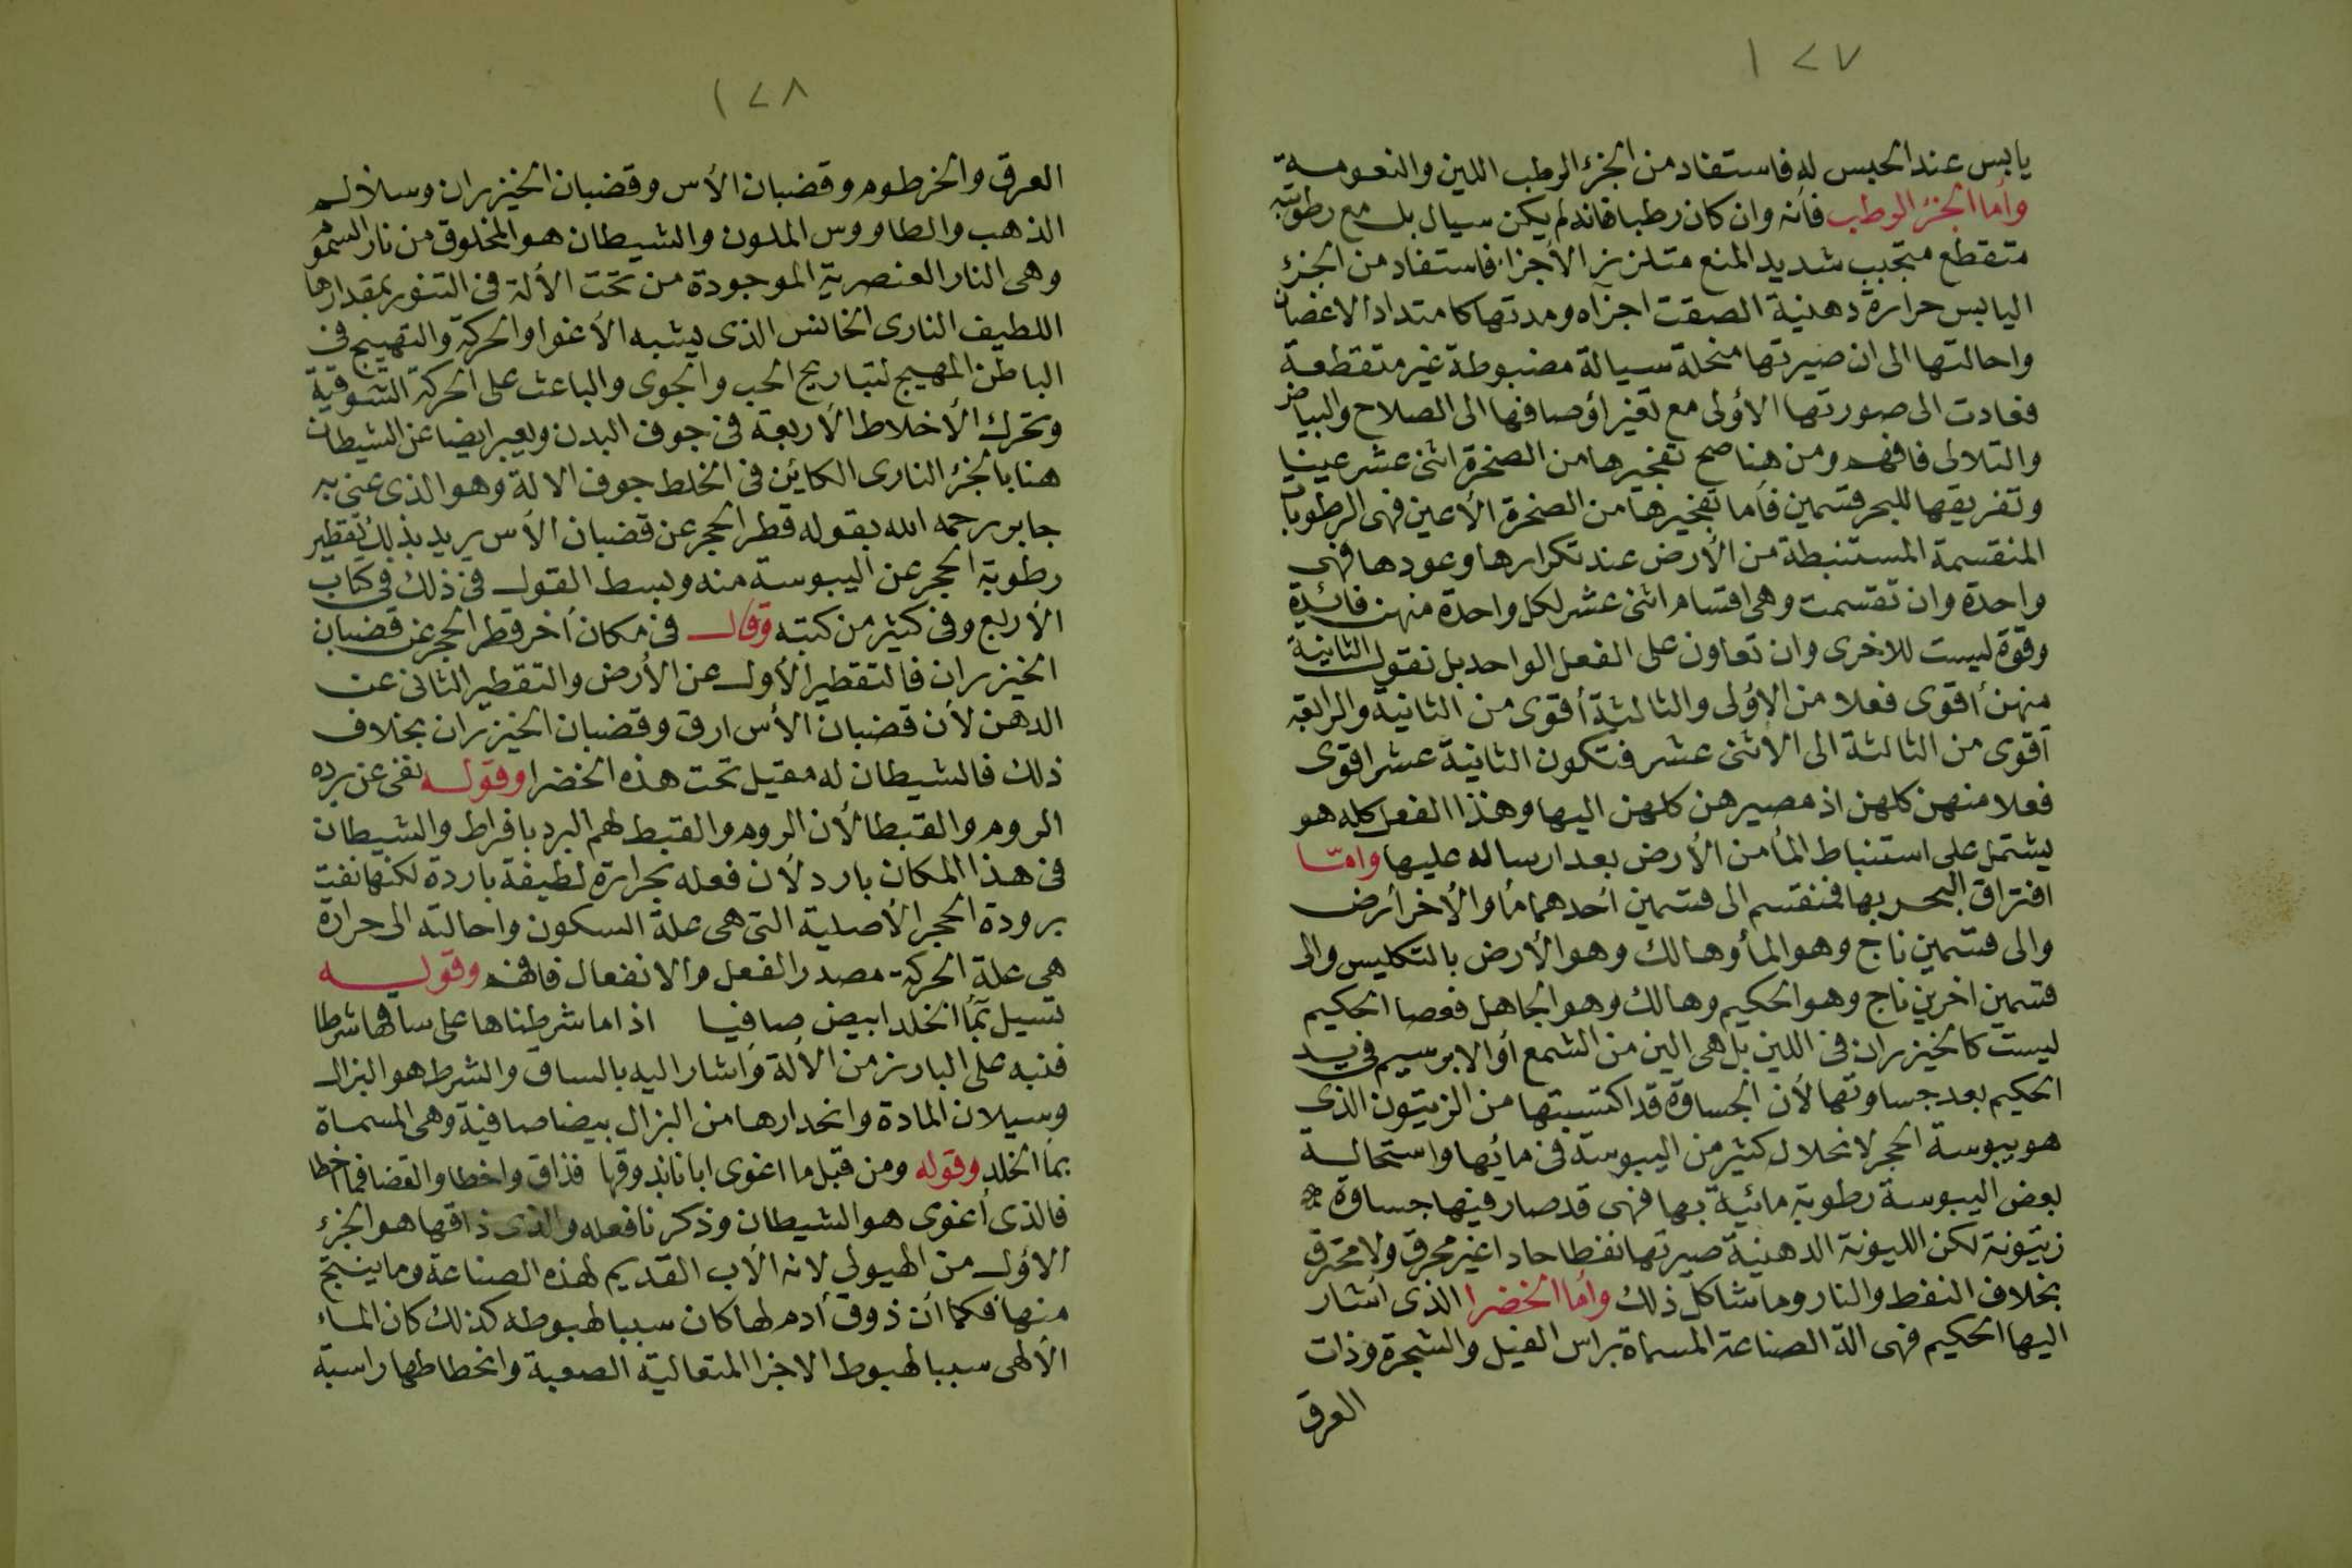 ١٢٧
يابس عند الحبس له فاستفاد من الجزء الرطب اللين والنعومـة
وأما الجزء الرطب فأنه وان كان رطبا فانه لم يكن سيال بل مع رطوبته
متقطع متجبب شديد المنع متلزز الأجزاء فاستفاد من الجزء
اليابس حرارة دهنية الصقت اجزآه ومدتها كامتداد الاغصان
واحالتها الى ان صيرتها منحلة سيالة مضبوطة غير متقطعة
فعادت الى صورتها الأولى مع تغير اوصافها الى الصلاح والبياض
والتلالى فافهم ومن هنا صح تفجيرها من الصخرة اثنى عشر عينا
وتفريقها للبحر قسمين فأما تفجيرها من الصخرة الأعين فهى الرطوبات
المنقسمة المستنبطة من الأرض عند تكرارها وعودها فهى
واحدة وان تقسمت وهى اقسام اثنى عشر لكل واحدة منهن فائدة
وقوة ليست للاخرى وان تعاون على الفعل الواحد بل نقول الثانية
منهن أقوى فعلا من الاؤلى والثالثة أقوى من الثانية والرابعة
أقوى من الثالثة الى الأثنى عشر فتكون الثانية عشر اقوى
فعلا منهن كلهن اذ مصيرهن كلهن اليها وهذا الفعل كله هو
يشتمل على استنباط المأ من الأرض بعد ارساله عليها وامّا
افتراق البحر بها فمنقسم الى قسمين أحدهما مأ والأخر أرض
والى قسمين ناج وهو المأ وهالك وهو الأرض بالتكليس والى
قسمين اخرين ناج وهو الحكيم وهالك وهو الجاهل فعصا الحكيم
ليست كالخيزران فى اللين بل هى الين من الشمع أو الابرسيم فى يد
الحكيم بعد جساوتها لأن الجساوة قد اكتسبتها من الزيتون الذى
هو يبوسة الحجر لانحلال كثير من اليبوسة فى مائها واستحالـة
بعض اليبوسة رطوبة مائية بها فهى قد صار فيها جساوة
زيتونة لكن الليونة الدهنية صيرتها نفطا حادا غير محرق ولا محترق
بخلاف النفط والنار وما شاكل ذلك وأما الخضرا الذى أشار
اليها الحكيم فهى الة الصناعة المسماة براس الفيل والشجرة وذات
العرق
١٢٨
العرق والخرطوم وقضبان الأس وقضبان الخيزران وسلالم
الذهب والطاووس الملون والشيطان هو المخلوق من نار السموم
وهى النار العنصرية الموجودة من تحت الألة فى التنور بمقدارها
اللطيف النارى الخانس الذى يشبه الأغوا والحركة والتهييج فى
الباطن المهيج لتباريح الحب والجوى والباعث على الحركة الشوقية
وتحرك الأخلاط الأربعة فى جوف البدن ويعبر ايضا عن الشيطان
هنا بالجزء النارى الكائن فى الخلط جوف الالة وهو الذى عنى به
جابر رحمه الله بقوله قطر الحجر عن قضبان الأس يريد بذلك تقطير
رطوبة الحجر عن اليبوسة منه وبسط القول فى ذلك فى كتاب
الأربع وفى كثير من كتبه وقال فى مكان أخر قطر الحجر عن قضبان
الخيزران فالتقطير الأول عن الأرض والتقطير الثانى عن
الدهن لأن قضبان الأس ارق وقضبان الخيزران بخلاف
ذلك فالشيطان له مقيل تحت هذه الخضرا وقوله نفى عن برده
الروم والقبطا لأن الروم والقبط لهم البرد بافراط والشيطان
فى هذا المكان بارد لأن فعله بحرارة لطيفة باردة لكنها نفت
برودة الحجر الأصلية التى هى علة السكون واحالته الى حرارة
هى علة الحركة مصدر الفعل والانفعال فافهم وقولـه
تسيل بمأ الخلد ابيض صافيا اذا ما شرطناها على ساقها شرطا
فنبه على البارز من الألة وأشار اليه بالساق والشرط هو البزال
وسيلان المادة وانحدارها من البزال بيضا صافية وهى المسماة
بمأ الخلد وقوله ومن قبل ما اغوى ابانا بذوقها فذاق واخطا والقضا فما اخطا
فالذى أغوى هو الشيطان وذكرنا فعله والذى ذاقها هو الجزء
الاؤل من الهيولى لانه الأب القديم لهذه الصناعة وما ينتج
منها فكما أن ذوق أدم لها كان سببا لهبوطه كذلك كان الماء
الألهى سببا لهبوط الاجزا المتعالية الصعبة وانحطاطها راسبة